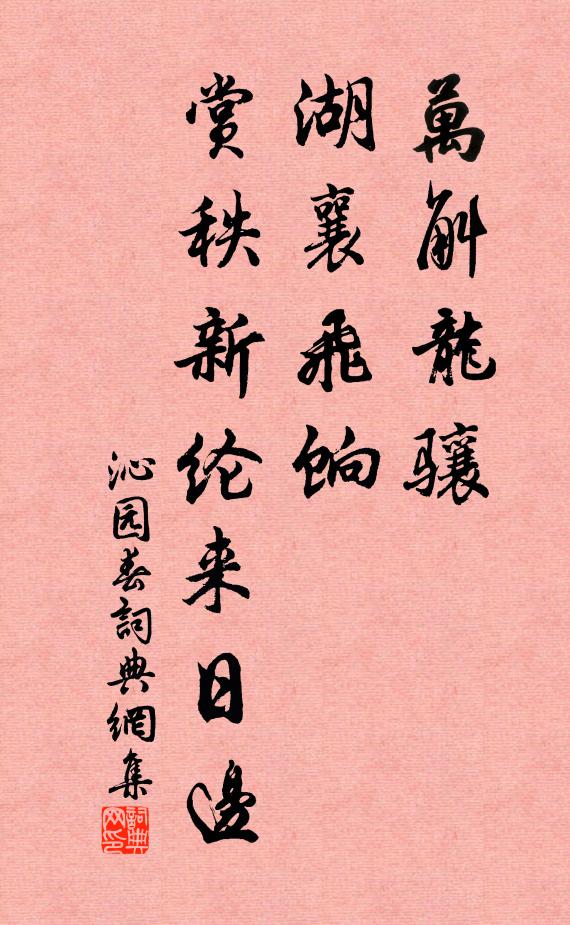 萬斛龍骧
湖襄飛餉
赏秩新纶来日邊
沁园春詞典網集
詞典网印